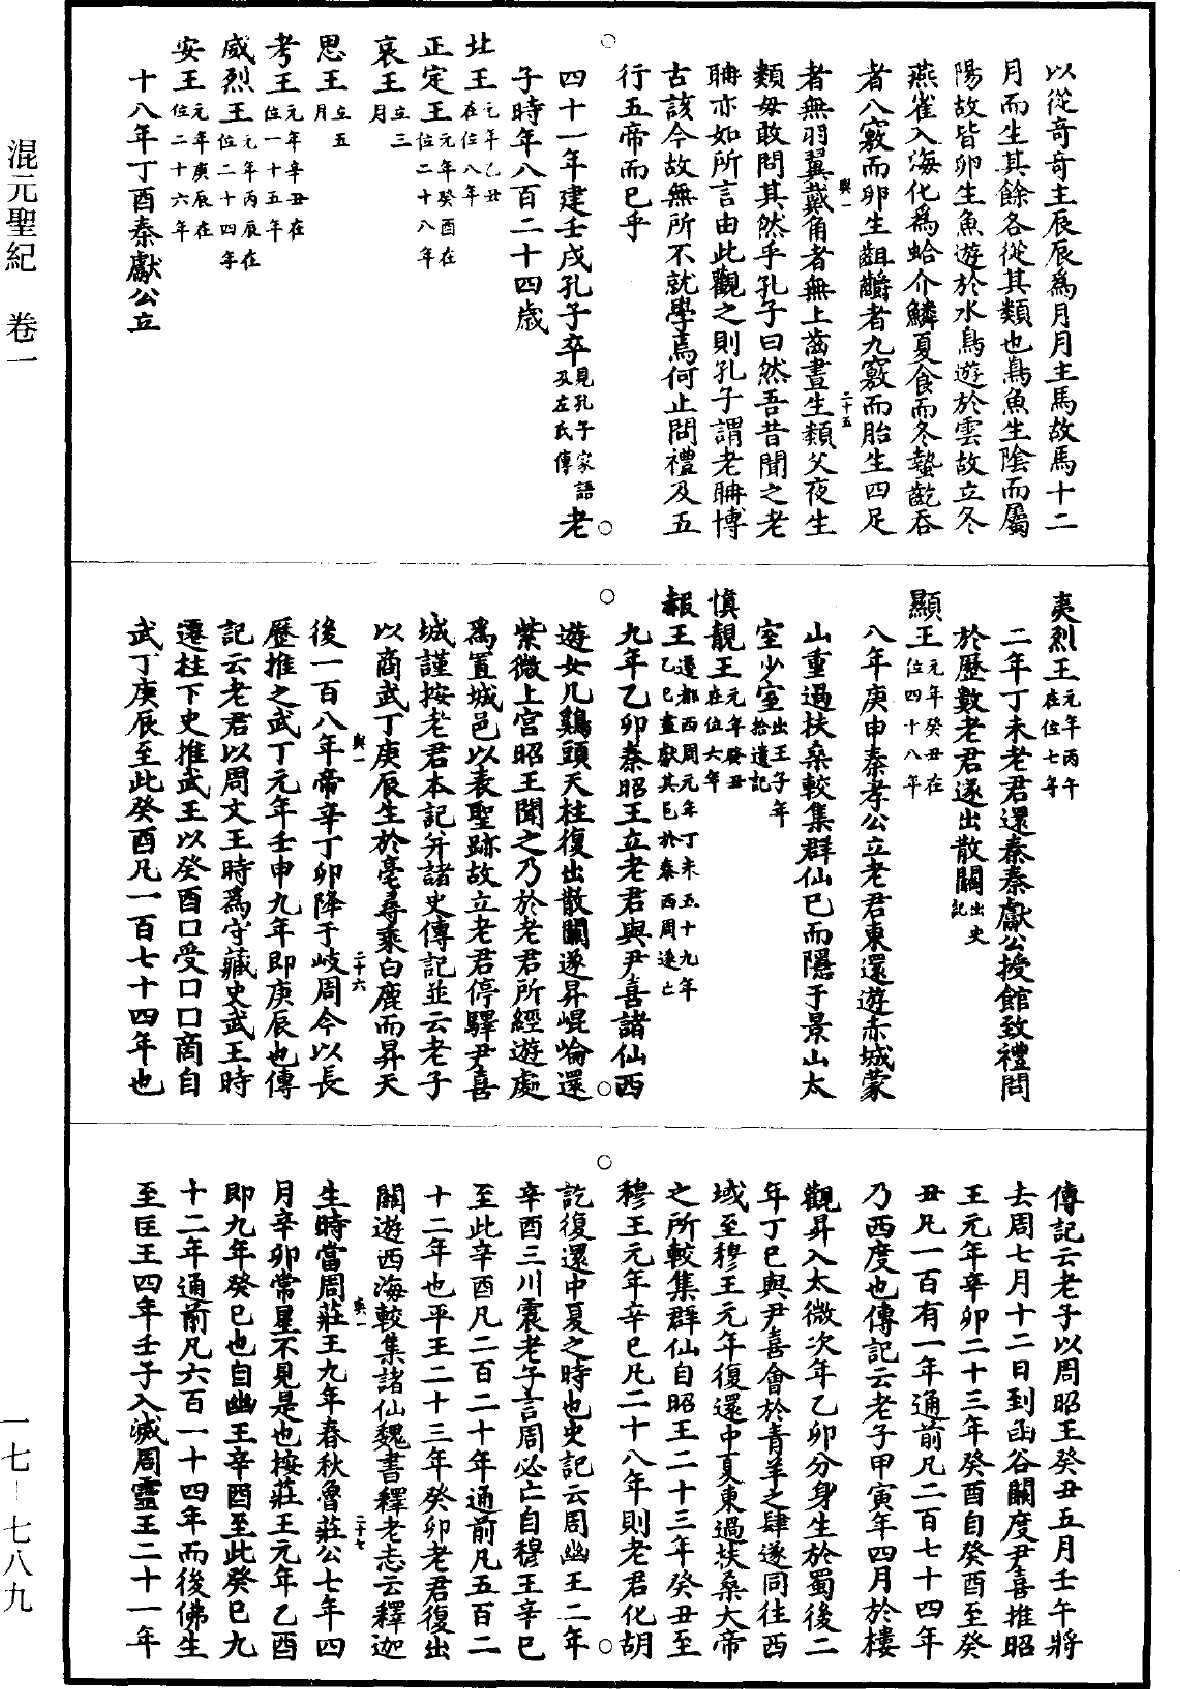 混元聖紀 卷一
一七—七八九
以從奇奇主辰辰爲月月主馬故馬十二
月而生其餘各從其類也鳥魚生陰而屬
陽故皆卵生魚遊於水鳥遊於雲故立冬
燕雀入海化爲蛤介鱗夏食而冬蟄齕吞
者八竅而卵生齟嚼者九竅而胎生四足
與一 二十五
者無羽翼戴角者無上齒晝生類父夜生
類母敢問其然乎孔子曰然吾昔聞之老
聃亦如所言由此觀之則孔子謂老聃博
古該今故無所不就學焉何止問禮及五
行五帝而已乎
四十一年建壬戌孔子卒見孔子家語及左氏傳老
子時年八百二十四歲
元王元年乙丑在位八年
正定王元年癸酉在位二十八年
哀王立三月
思王立五月
考王元年辛丑在位一十五年
威烈王元年丙辰在位二十四年
安王元年庚辰在位二十六年
十八年丁酉秦獻公立
夷烈王元年丙午在位七年
二年丁未老君還秦秦獻公授館致禮問
於歷數老君遂出散關出史記
顯王元年癸丑在位四十八年
八年庚申秦孝公立老君東還遊赤城蒙
山重過扶桑較集群仙已而隱于景山太
室少室出王子年拾遺記
慎靚王元年癸丑在位六年
赧王遷都西周元年丁未五十九年乙巳盡獻其邑於秦西周遂亡
九年乙卯秦昭王立老君與尹喜諸仙西
遊女几鷄頭天柱復出散關遂昇崐崘還
紫微上宮昭王聞之乃於老君所經遊處
爲置城邑以表聖跡故立老君停驛尹喜
城謹按老君本記并諸史傳記並云老子
以商武丁庚辰生於亳尋乘白鹿而昇天
與一 二十六
後一百八年帝辛丁卯降于岐周今以長
歷推之武丁元年壬申九年即庚辰也傳
記云老君以周文王時爲守藏史武王時
遷柱下史推武王以癸酉口受口口商自
武丁庚辰至此癸酉凡一百七十四年也
傳記云老子以周昭王癸丑五月壬午將
去周七月十二日到函谷關度尹喜推昭
王元年辛卯二十三年癸酉自癸酉至癸
丑凡一百有一年通前凡二百七十四年
乃西度也傳記云老子甲寅年四月於樓
觀昇入太微次年乙卯分身生於蜀後二
年丁巳與尹喜會於青羊之肆遂同往西
域至穆王元年復還中夏東過扶桑大帝
之所較集群仙自昭王二十三年癸丑至
穆王元年辛巳凡二十八年則老君化胡
訖復還中夏之時也史記云周幽王二年
辛酉三川震老子言周必亡自穆王辛巳
至此辛酉凡二百二十年通前凡五百二
十二年也平王二十三年癸卯老君復出
關遊西海較集諸仙魏書釋老志云釋迦
與一 二十七
生時當周莊王九年春秋魯莊公七年四
月辛卯常星不見是也按莊王元年乙酉
即九年癸巳也自幽王辛酉至此癸巳九
十二年通前凡六百一十四年而後佛生
至匡王四年壬子入滅周靈王二十一年